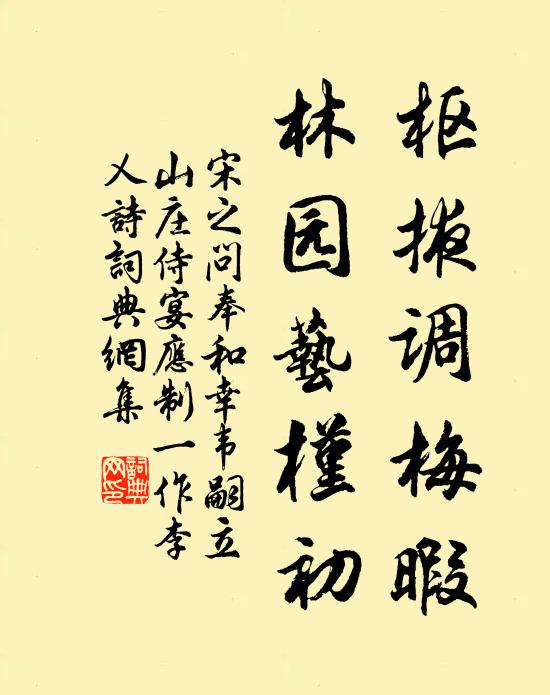 枢掖调梅暇
林园藝槿初
宋之问奉和幸韦嗣立
山庄侍宴應制一作李
乂詩詞典網集
詞典
网印